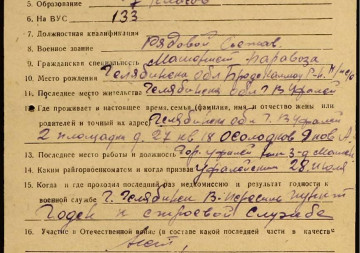 5. Образование 7 классов
6. На ВУС 133
7. Должностная квалификация
8. Военное звание Рядовой Состав.
9. Гражданская специальность Машинист Паровоза
10. Место рождения Челябинска обл Р-н.
11. Последнее место жительства Челябинска обл Г. В Уфалей
12. Где проживает в настоящее время, семья (фамилия, имя и отчество жены или
родителей и точный их адрес) Челябинска обл Г. В Уфалей
2 площадка д. 27 кв 18 Осолодков
13. Последнее место работы и должность Гор. Уфалей
14. Каким райгорвоенкоматом и когда призван Уфалейский 28 июля
15. Когда и где проходил последний раз медкомиссию и результат годности к
военной службе Г. Челябинск В-Пересыл пункт
Годен к строевой Службе
16. Участие в Отечественной войне (в составе какой последней части в качестве
Нет.